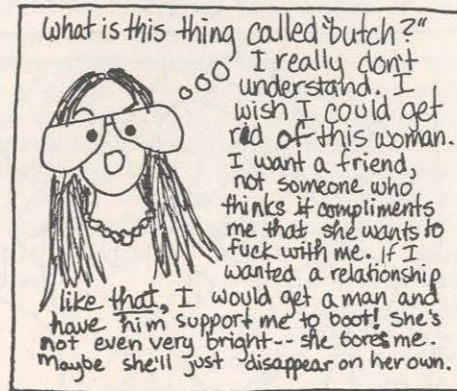 What is this thing called "butch?"
I really don't
understand. I
wish I could get
rid of this woman.
I want a friend,
not someone who
thinks it compliments
me that she wants to
fuck with me. If I
wanted a relationship
like that, I would get a man and
have him support me to boot! She's
not even very bright -- she bores me.
Maybe she'll just disappear on her own.